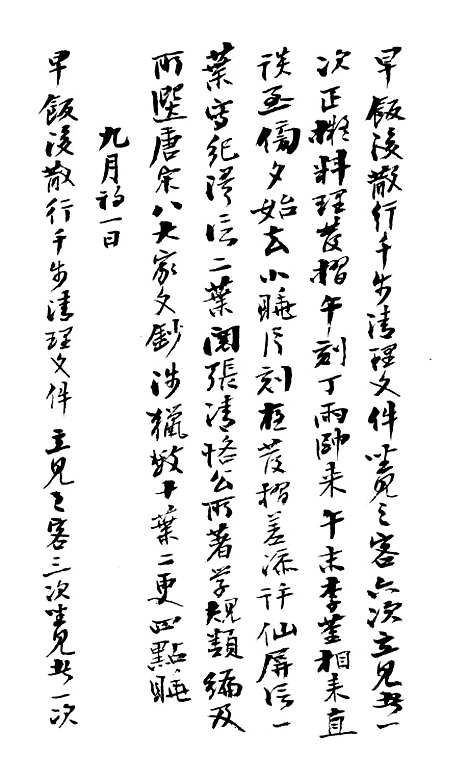 早飯後散行千步清理文件坐見之客六次立見者一
次正擬料理發摺午刻丁雨帥來午末李筱相來直
談至傍夕始去小睡片刻夜發摺差添許仙屏信一
葉寫紀澤信二葉閱張清恪公所著学規類編及
所選唐宋八大家文鈔涉獵数十葉二更四點睡
九月初一日
早飯後散行千步清理文件立見之客三次坐見者一次